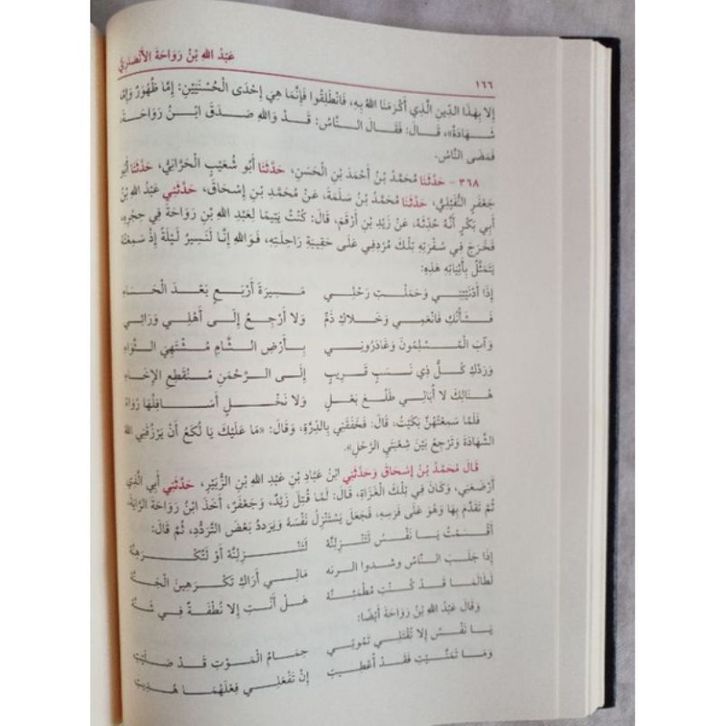 ١٦٦
عَبْدُ اللهِ بْنُ رَوَاحَةَ الأَنْصَارِيُّ
إلا بِهَذَا الدِّينِ الَّذِي أَكْرَمَنَا اللهُ بِهِ، فَانْطَلِقُوا فَإِنَّمَا هِيَ إِحْدَى الْحُسْنَيَيْنِ: إِمَّا ظُهُورٌ وَإِمَّا
شَهَادَةٌ»، قَالَ: فَقَالَ النَّاسُ: قَدْ وَاللهِ صَدَقَ ابْنُ رَوَاحَةَ،
فَمَضَى النَّاسُ.
٣٦٨ - حَدَّثَنَا مُحَمَّدُ بْنُ أَحْمَدَ بْنِ الْحَسَنِ، حَدَّثَنَا أَبُو شُعَيْبٍ الْحَرَّانِيُّ، حَدَّثَنَا أَبُو
جَعْفَرٍ النُّفَيْلِيُّ، حَدَّثَنَا مُحَمَّدُ بْنُ سَلَمَةَ، عَنْ مُحَمَّدِ بْنِ إِسْحَاقَ، حَدَّثَنِي عَبْدُ اللهِ بْنُ
أَبِي بَكْرٍ أَنَّهُ حُدِّثَهُ، عَنْ زَيْدِ بْنِ أَرْقَمَ، قَالَ: كُنْتُ يَتِيمًا لِعَبْدِ اللهِ بْنِ رَوَاحَةَ فِي حِجْرِهِ،
فَخَرَجَ فِي سَفْرَتِهِ تِلْكَ مُرْدِفِي عَلَى حَقِيبَةِ رَاحِلَتِهِ، فَوَاللهِ إِنَّا لَنَسِيرُ لَيْلَةً إِذْ سَمِعْتُهُ
يَتَمَثَّلُ بِأَبْيَاتِهِ هَذِهِ:
إِذَا أَدْنَيْتِنِي وَحَمَلْتِ رَحْلِي مَسِيرَةَ أَرْبَعٍ بَعْدَ الْحَسَاءِ
فَشَأْنُكِ فَانْعَمِي وَخَلَاكِ ذَمٌّ وَلا أَرْجِعُ إِلَى أَهْلِي وَرَائِي
وَآبَ الْمُسْلِمُونَ وَغَادَرُونِي بِأَرْضِ الشَّامِ مُشْتَهِيَ الثَّوَاءِ
وَرَدَّكِ كُلُّ ذِي نَسَبٍ قَرِيبٍ إِلَى الرَّحْمَنِ مُنْقَطِعَ الإِخَاءِ
هُنَالِكَ لا أُبَالِي طَلْعَ بَعْلٍ وَلا نَخْلٍ أَسَافِلُهَا رَوَاءُ
فَلَمَّا سَمِعْتُهُنَّ بَكَيْتُ، قَالَ: فَخَفَقَنِي بِالدِّرَّةِ، وَقَالَ: «مَا عَلَيْكَ يَا لُكَعُ أَنْ يَرْزُقَنِي اللهُ
الشَّهَادَةَ وَتَرْجِعَ بَيْنَ شِعْبَتَيِ الرَّحْلِ».
قَالَ مُحَمَّدُ بْنُ إِسْحَاقَ وَحَدَّثَنِي ابْنُ عَبَّادِ بْنِ عَبْدِ اللهِ بْنِ الزُّبَيْرِ، حَدَّثَنِي أَبِي الَّذِي
أَرْضَعَنِي، وَكَانَ فِي تِلْكَ الْغَزَاةِ، قَالَ: لَمَّا قُتِلَ زَيْدٌ، وَجَعْفَرٌ، أَخَذَ ابْنُ رَوَاحَةَ الرَّايَةَ،
ثُمَّ تَقَدَّمَ بِهَا وَهُوَ عَلَى فَرَسِهِ، فَجَعَلَ يَسْتَنْزِلُ نَفْسَهُ وَيَرَددُ بَعْضَ التَّرَدُّدِ، ثُمَّ قَالَ:
أَقْسَمْتُ يَا نَفْسُ لَتَنْزِلِنَّهْ لَتَنْزِلِنَّهْ أَوْ لَتُكْرَهِنَّهْ
إِذَا جَلَبَ النَّاسُ وشدوا الرنه مَالِي أَرَاكِ تَكْرَهِينَ الْجَنَّهْ
لَطَالَمَا قَدْ كُنْتِ مُطْمَئِنَّهْ هَلْ أَنْتِ إِلا نُطْفَةٌ فِي شَنَّهْ
وَقَالَ عَبْدُ اللهِ بْنُ رَوَاحَةَ أَيْضًا:
يَا نَفْسُ إِلا تُقْتَلِي تَمُوتِي حِمَامُ الْمَوْتِ قَدْ صَلِيتِ
وَمَا تَمَنَّيْتِ فَقَدْ أُعْطِيتِ إِنْ تَفْعَلِي فِعْلَهُمَا هُدِيتِ